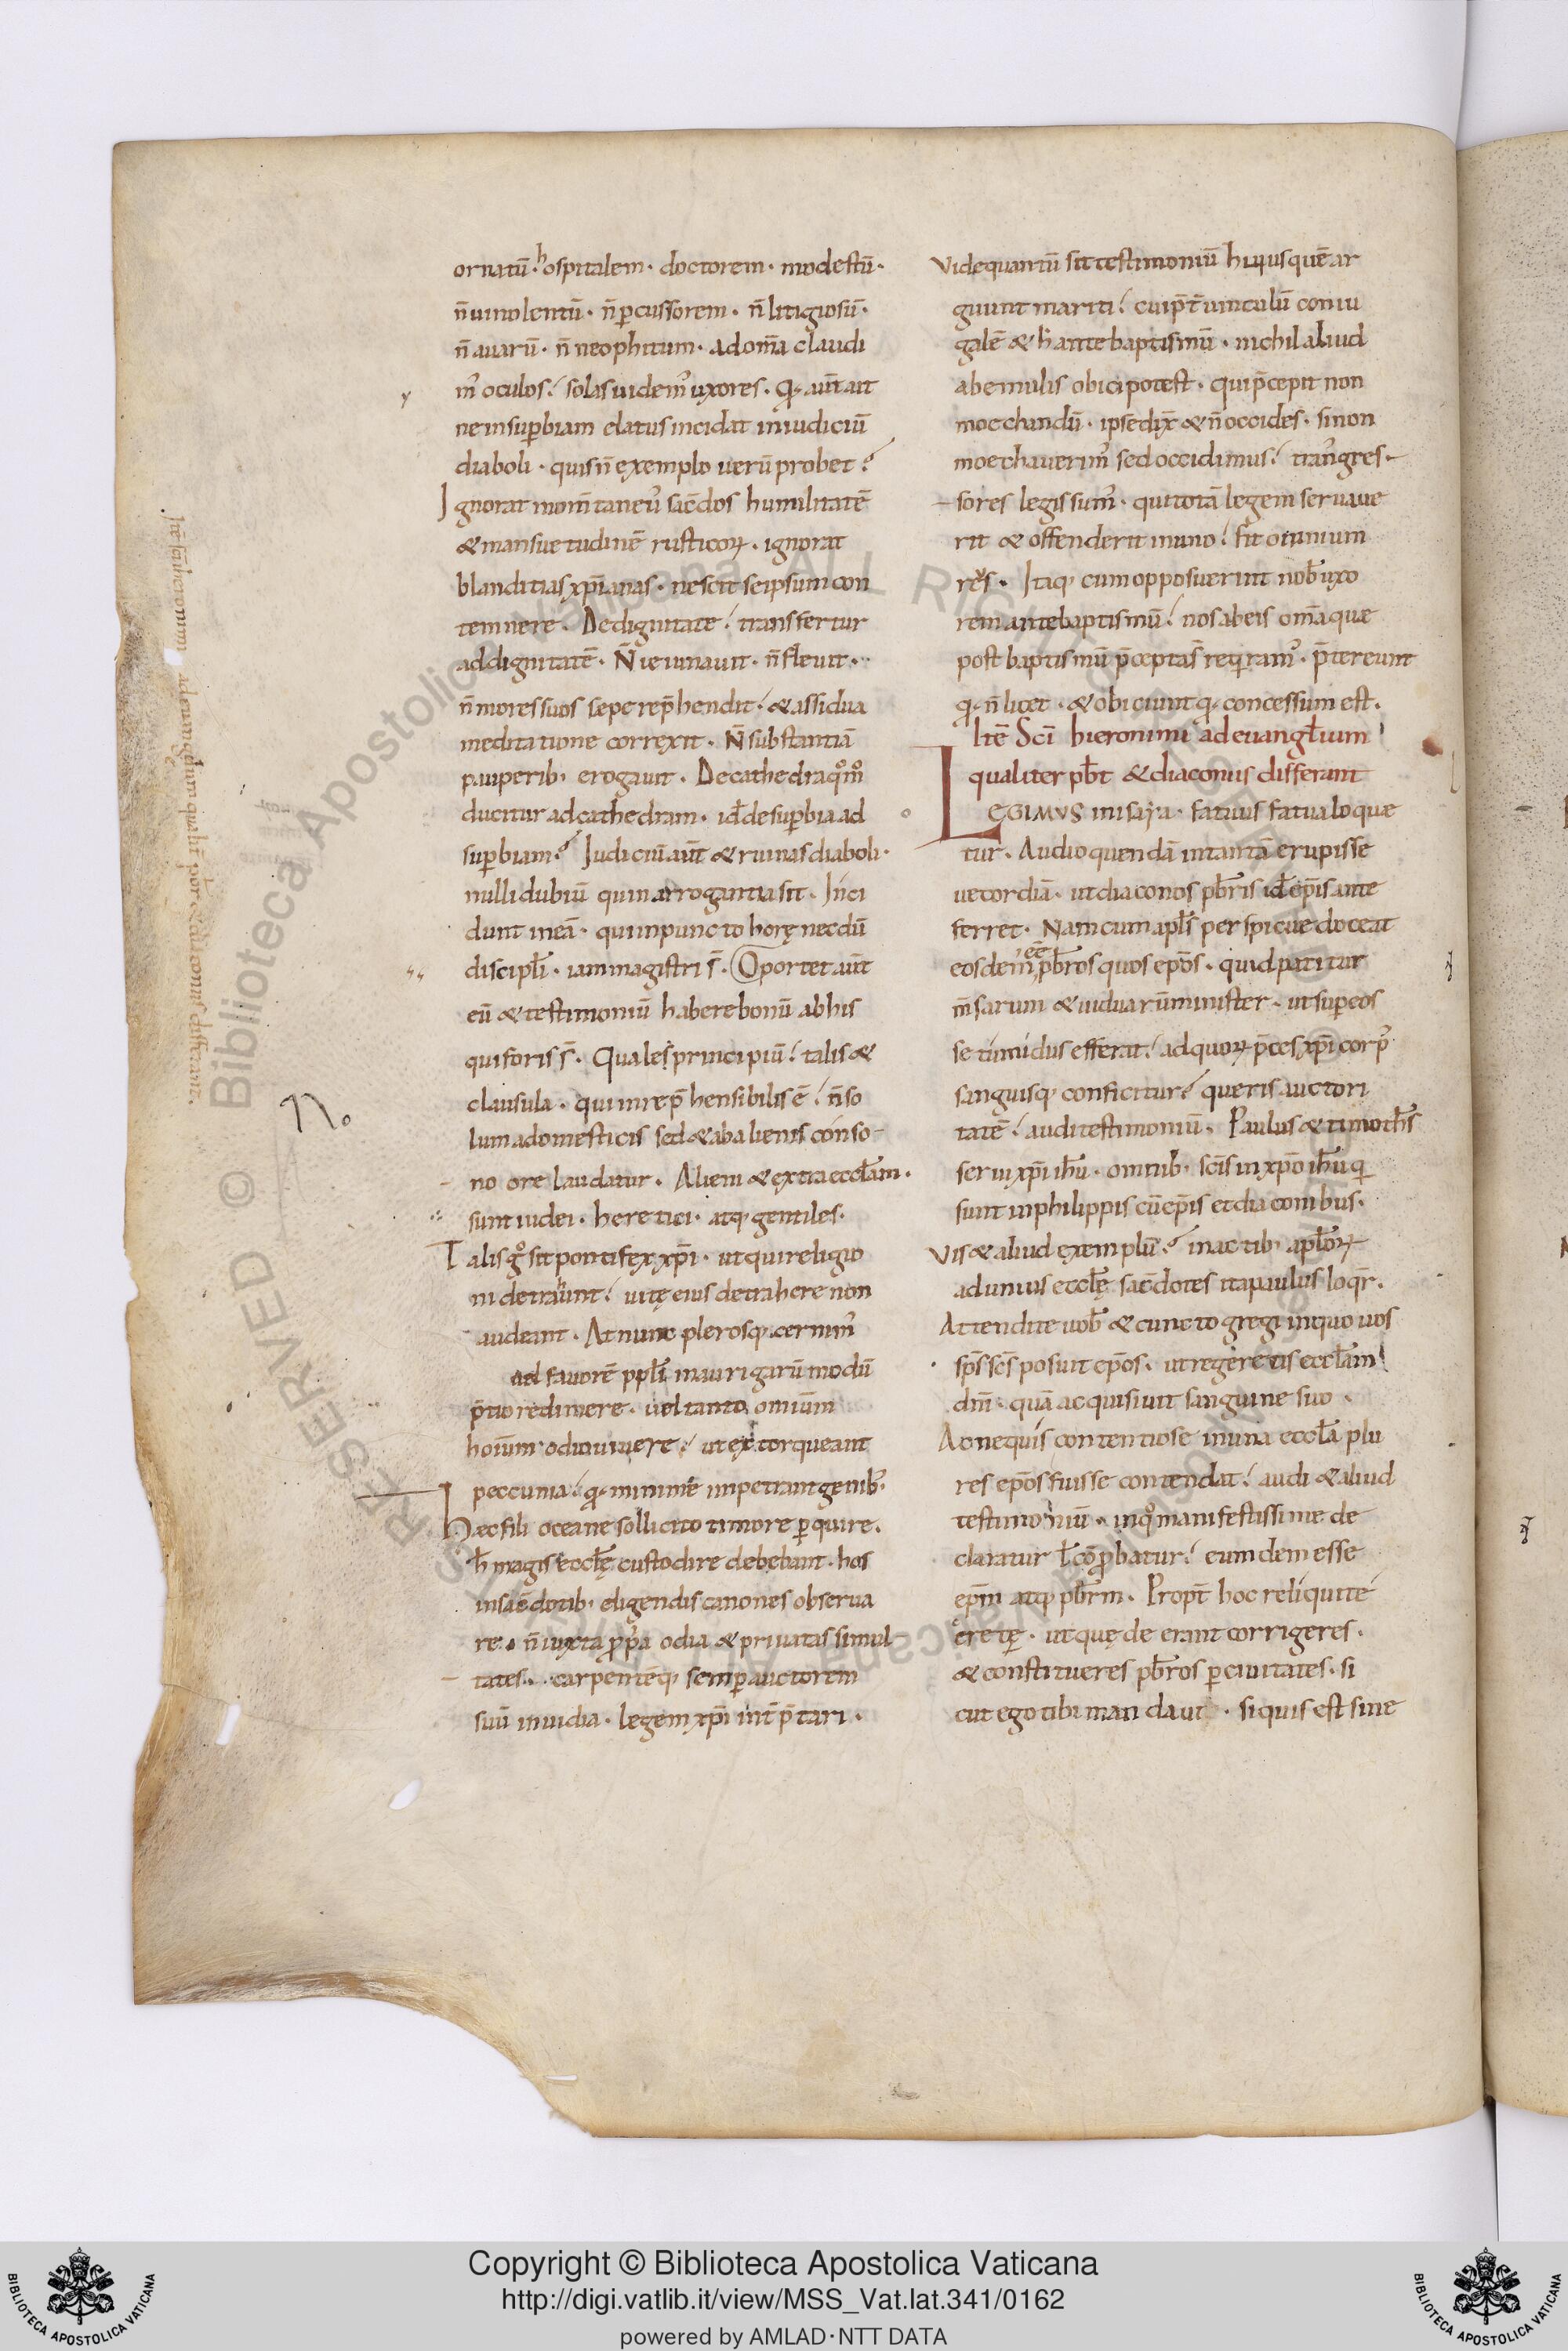 ornatū· hospitalem· doctorem· modestū·
n̄ uinolentū· n̄ p̱cussorem· n̄ litigiosū·
n̄ auarū· n̄ neophitum· ad om̄a claudi
mꝰ oculos; solas uidemꝰ uxores· Qđ aūt ait
ne in sup̱biam elatus incidat in iudiciū
diaboli· quis n̄ exemplo uerū probet?
Ignorat mom̄taneuꝰ sac̄dos humilitatē
& mansuetudinē rusticoꝝ· ignorat
blanditias xp̄ianas· nescit se ipsum con
temnere· De dignitate; transfertur
ad dignitatē· N̄ ieiunauit· n̄ fleuit·
n̄ mores suos sepe rep̄hendit; & assidua
meditatione correxit· N̄ substantiā
pauperib; erogauit· De cathedra qͦmͦ
ducitur ad cathedram· id̄ de sup̱bia ad
sup̱biam? Iudiciū aūt & ruinas diaboli·
nulli dubiū quin arrogantia sit· Inci
dunt in eā· qui in puncto horę necdū
discipłi· iam magistri s̄· Oportet aūt
eū & testimoniū habere bonū ab his
qui foris s̄· Quale principiū; talis &
clausula· qui inrep̄hensibilis ē; n̄ so
lum a domesticis sed & ab alienis conso
no ore laudatur· Alieni & extra eccłam·
sunt iudei· heretici· atq; gentiles·
Talis gͦ sit pontifex xp̄i· ut qui religio
ni detrahunt; uitę eius detrahere non
audeant· At nunc plerosq; cernimꝰ
ad fauorē ppłi in aurigarū modū
p̄tio redimere· uel tanto omium̄
hoium̄ odio uiuere; ut extorqueant
peccunia; qđ minime impetrant genib;
Hęc fili oceane sollicito timore p̱quire·
h̄ magis eccłę custodire debebant· hos
in sac̄dotib; eligendis canones obserua
re· n̄ iuxta p̱p̱a odia & priuatas simul
tates· carpenteq; semp̱ auctorem
suū inuidia· legem xp̄i int̄p̄tari·
Vide quantū sit testimoniū huiusquē ar
guunt mariti; cui p̄t̄ uinculū coniu
galē & h̄ ante baptismū· nichil aliud
ab emulis obici potest· qui p̄cepit non
moechandū· ipse dix̄ & n̄ occides· si non
moechauerimꝰ sed occidimus; tran̄sgres
sores legis sumꝰ· qui totā legem seruaue
rit & offenderit in uno; fit omnium
reus· Itaq; cum opposuerint nob̄ uxo
rem ante baptismū; nos ab eis om̄a que
post baptismū p̄cepta s̄ requiramꝰ· p̄tereunt
qđ n̄ licet· & obiciunt qđ concessum est·
Itē Sc̄i hieronimi ad euangłium
qualiter pb̄t & diaconus differant
LEGIMVS in isaya· fatuus fatua loque
tur· Audio quendā in tantā erupisse
uecordiā· ut diaconos pb̄ris id̄ ep̄is ante
ferret· Nam cum apłs perspicue doceat
eosdem ee̅ pb̄ros quos ep̄os· quid patitur
m̄sarum & uiduarū minister· ut sup̱ eos
se tumidus efferat; ad quoꝝ p̄ces xp̄i corpꝰ
sanguisq; conficitur? queris auctori
tatē; audi testimoniū· Paulus & timoth̄s
serui xp̄i ih̄u· omnib; sc̄is in xp̄o ih̄u qi
sunt in philippis cū ep̄is et diaconibus·
Vis & aliud exemplū? in actib; apłoꝝ
ad unius eccłę sac̄dotes ita paulus loqr̄·
Attendite uob̄ & cuncto gregi in quo uos
sp̄s sc̄s posuit ep̄os· ut regeretis eccłam
dn̄i· quā acquisiuit sanguine suo·
Ac ne quis contentiose in una eccła plu
res ep̄os fuisse contendat; audi & aliud
testimoniū· in qͦ manifestissime de
claratur ł cōprobatur; eumdem esse
ep̄m atq; pb̄rm· Propt̄ hoc reliqui te
cretę· ut quę deerant corrigeres·
& constitueres pb̄ros p̱ ciuitates· si
cut ego tibi mandaui· si quis est sine
Itē sc̄i ieronimi ad euangłium qualit̄ pb̄r & diaconus differant·
Copyright © Biblioteca Apostolica Vaticana
http://digi.vatlib.it/view/MSS_Vat.lat.341/0162
powered by AMLAD·NTT DATA
BIBLIOTECA APOSTOLICA VATICANA
BIBLIOTECA APOSTOLICA VATICANA